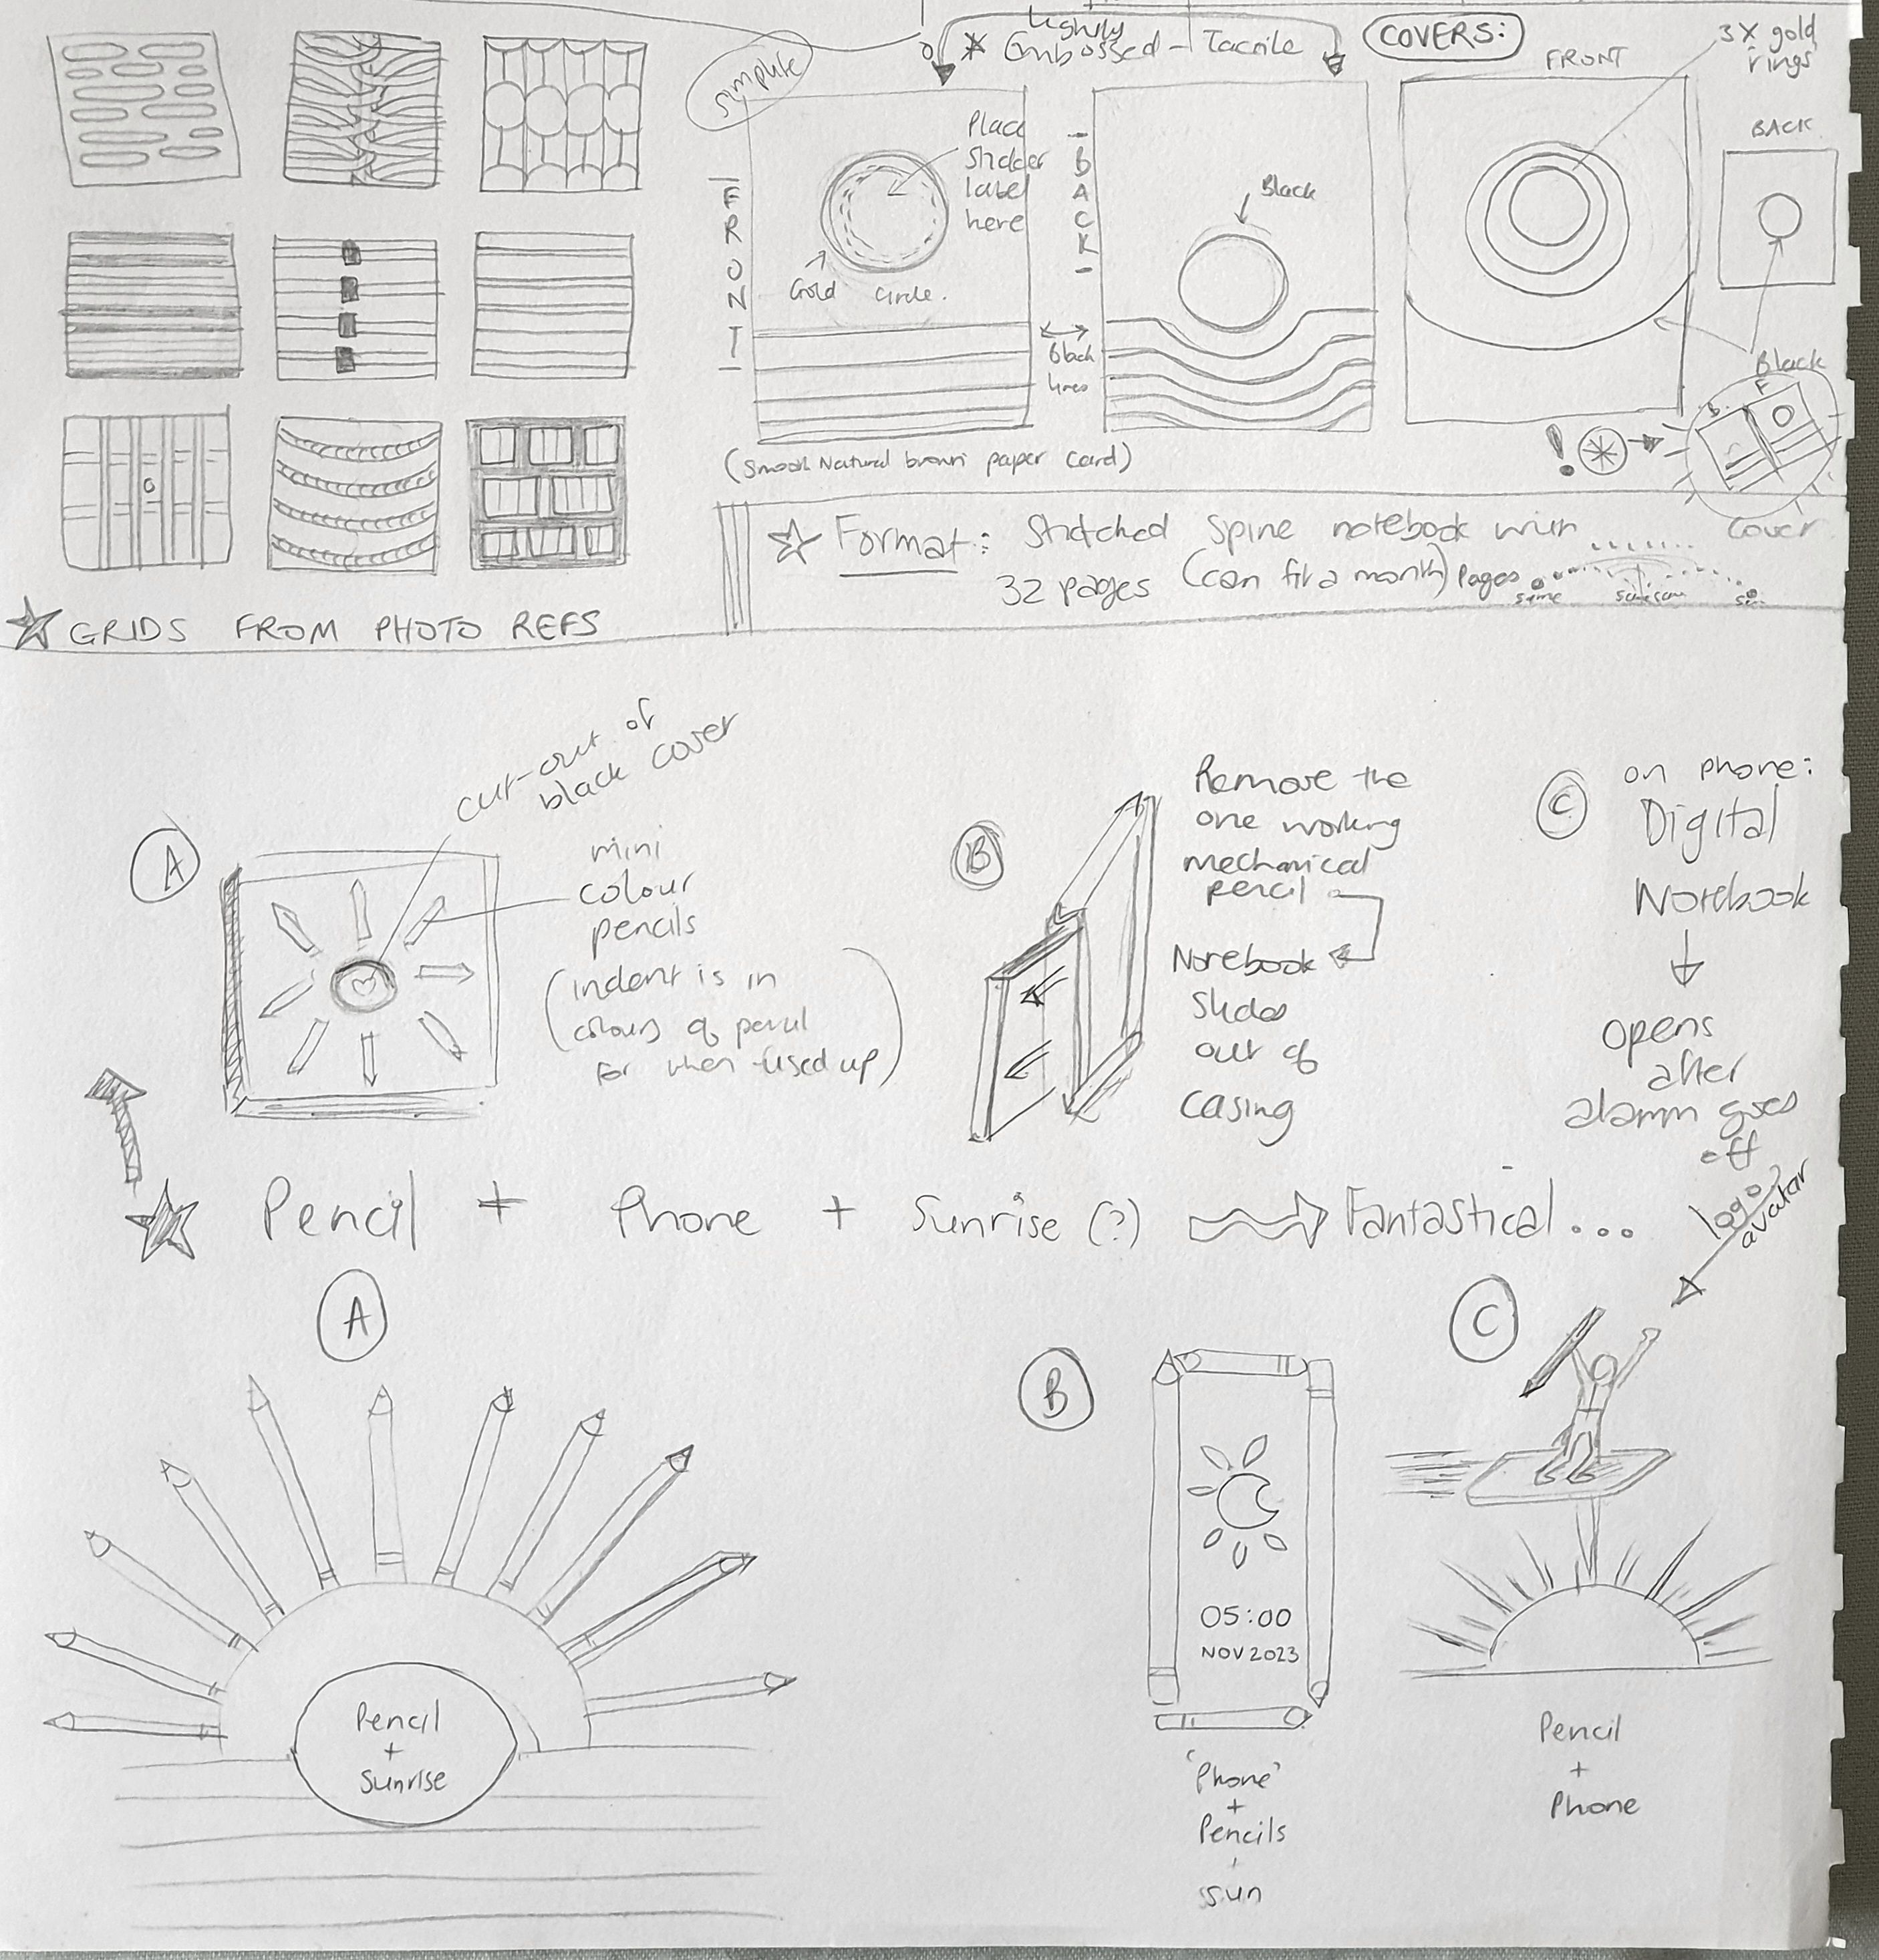 simple
lightly
* Embossed - Tactile
COVERS:
3x gold
rings
FRONT
BACK
Place
sticker
label
here
Gold circle.
FRONT
BACK
Black
Black
lines
Black
(Smooth Natural brown paper card)
B F
! *
Cover
Format: Stitched Spine notebook with
32 pages (can fit a month) pages
GRIDS FROM PHOTO REFS
cut-out of
black cover
A
mini
colour
pencils
(indent is in
colours of pencil
for when used up)
B
Remove the
one working
mechanical
pencil
Notebook
slides
out of
casing
C
on phone:
Digital
Notebook
opens
after
alarm goes
off
Pencil + Phone + Sunrise (?) Fantastical...
logo?
avatar
A
Pencil
+
Sunrise
B
05:00
NOV 2023
'Phone'
+
Pencils
+
sun
C
Pencil
+
Phone